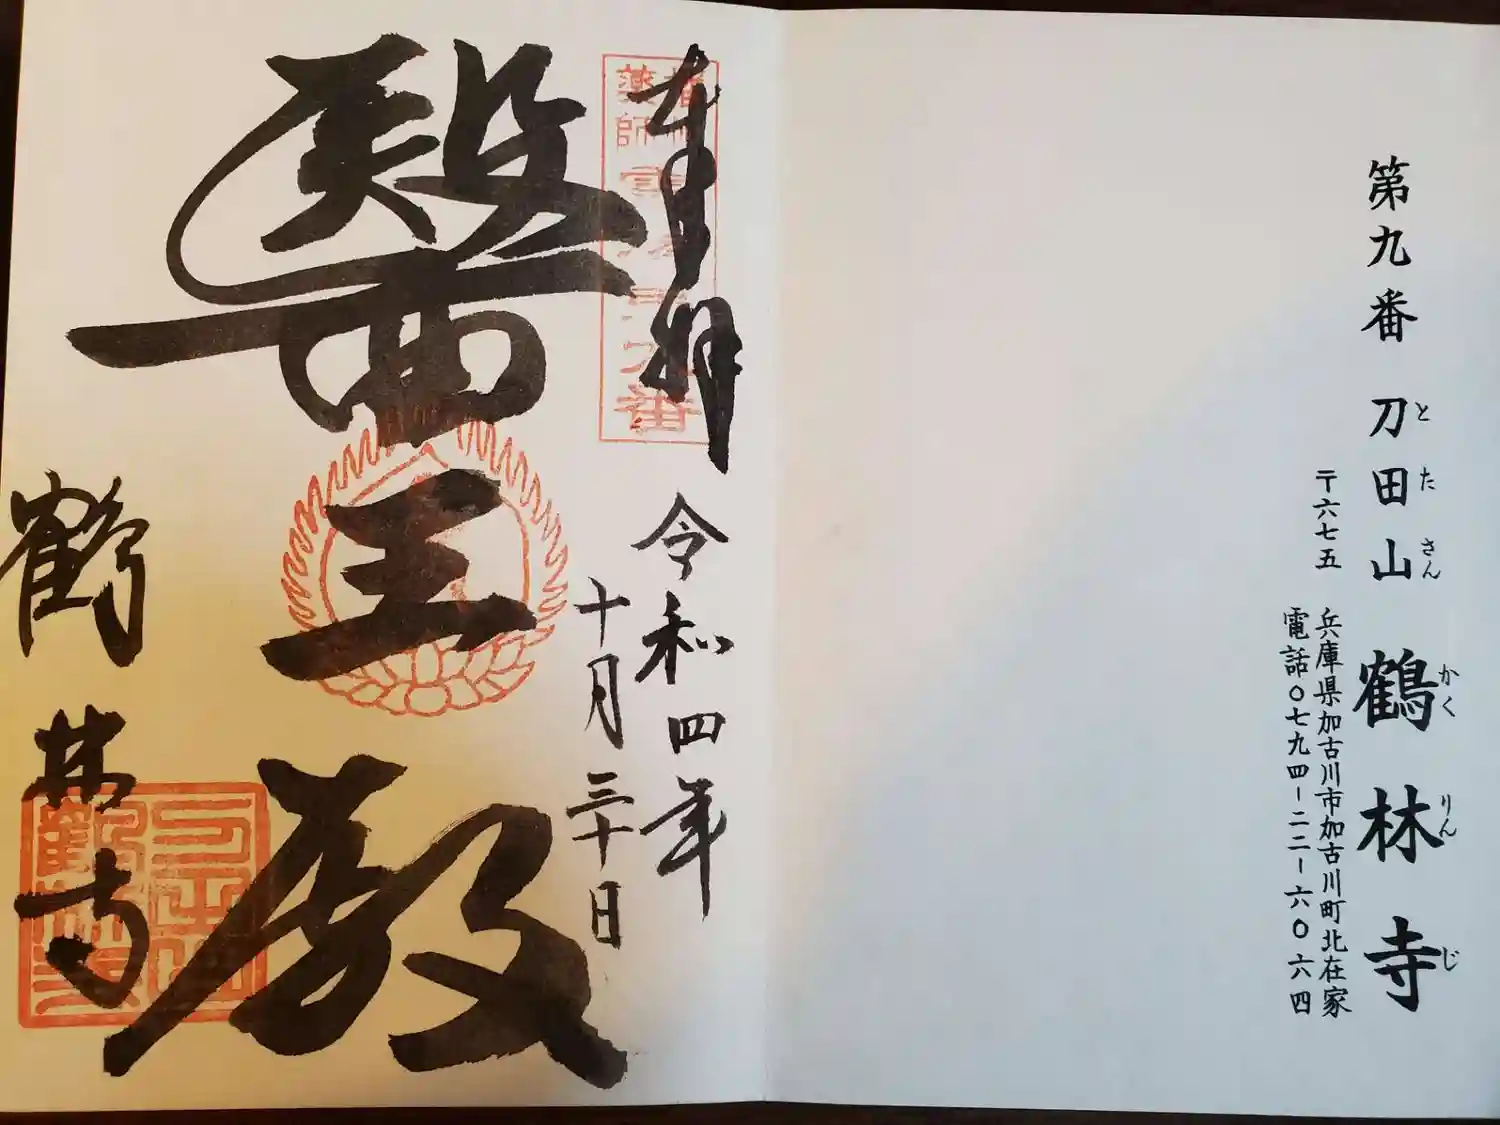 第九番 刀田山 鶴林寺
とたさん かくりんじ
〒六七五
兵庫県加古川市加古川町北在家
電話〇七九四-二二-六〇六四
奉拝
令和四年
十月三十日
醫王殿
鶴林寺